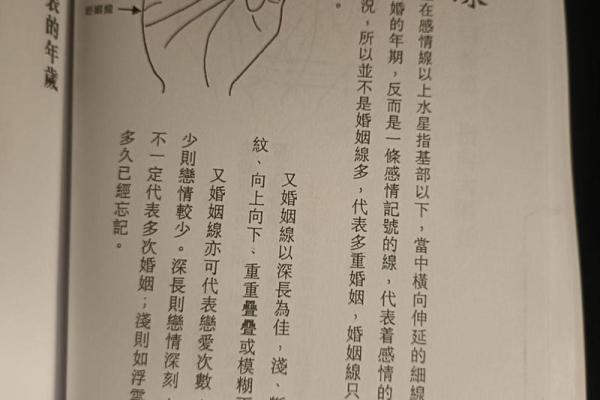 在感情線以上水星指基部以下，當中橫向伸延的細線
婚的年期，反而是一條感情記號的線，代表着感情的
況，所以並不是婚姻線多，代表多重婚姻，婚姻線只
。
又婚姻線以深長為佳，淺、
紋、向上向下、重重疊疊或模糊
又婚姻線亦可代表戀愛次數
少則戀情較少。深長則戀情深刻
不一定代表多次婚姻；淺則如浮雲
多久已經忘記。
婚姻線
表的年歲